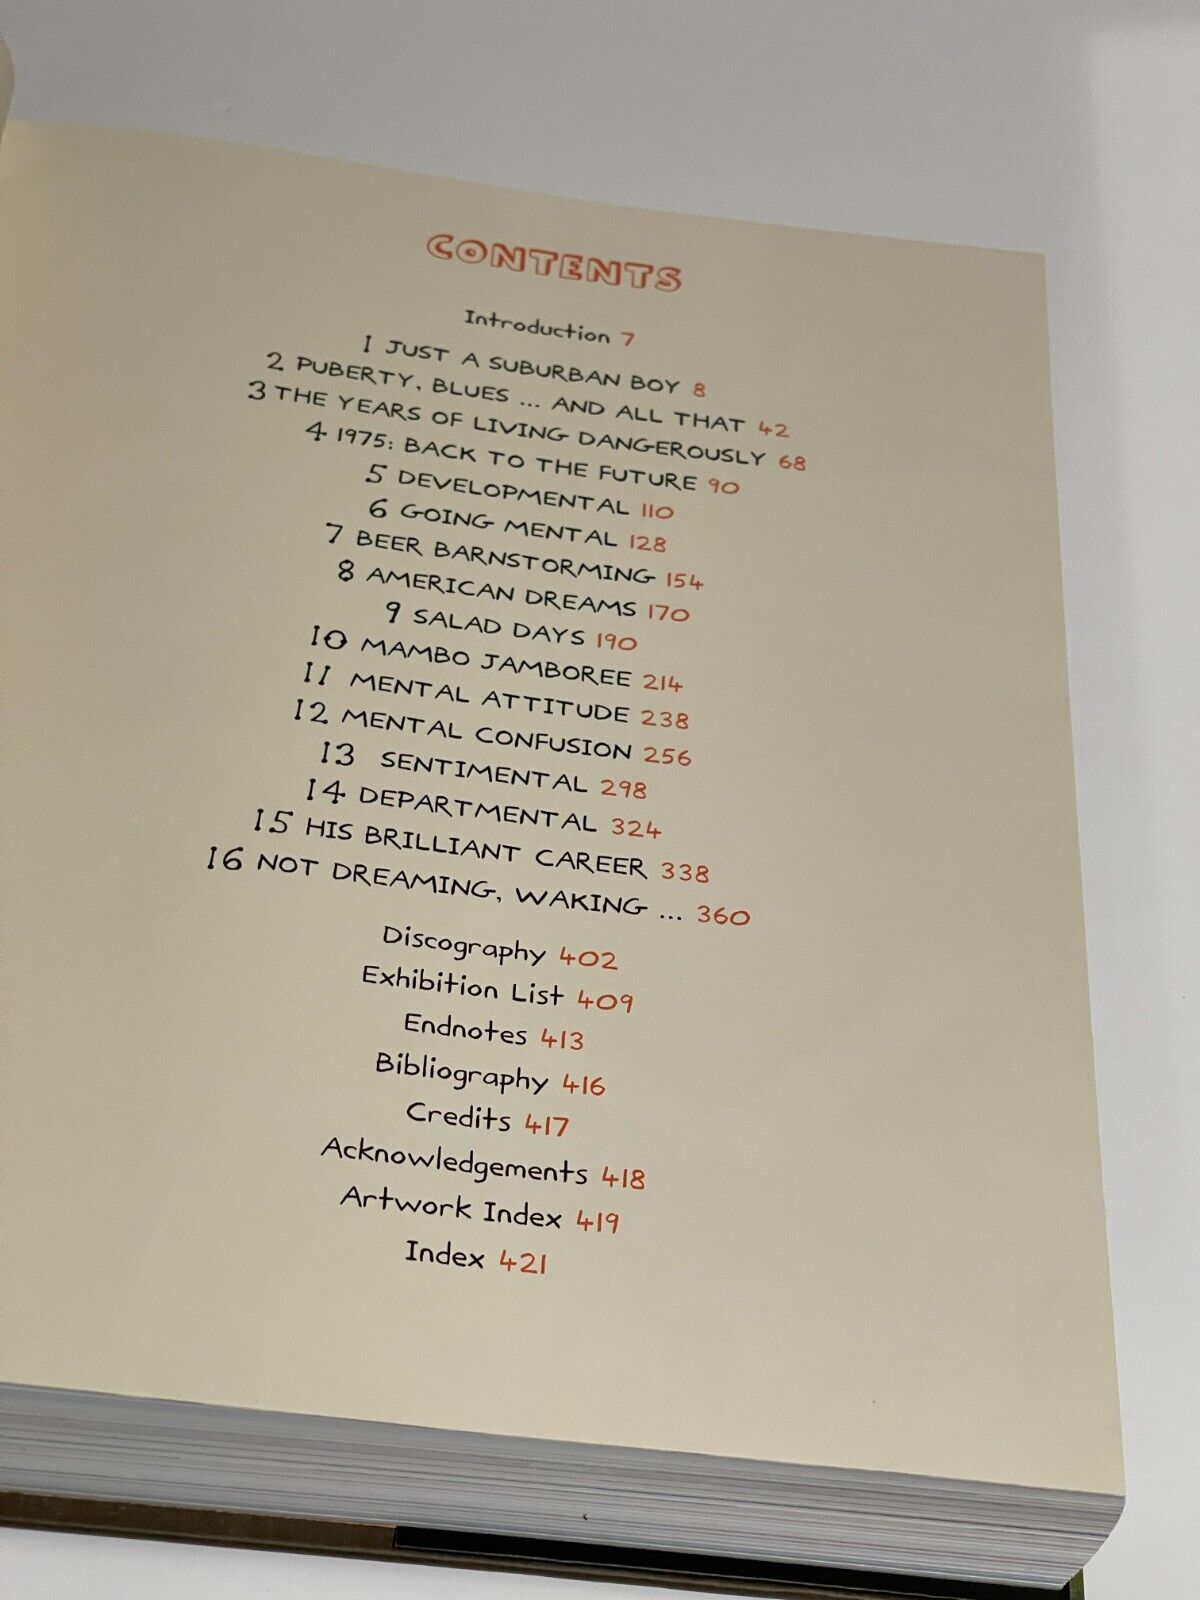 CONTENTS
Introduction 7
1 JUST A SUBURBAN BOY 8
2 PUBERTY, BLUES ... AND ALL THAT 42
3 THE YEARS OF LIVING DANGEROUSLY 68
4 1975: BACK TO THE FUTURE 90
5 DEVELOPMENTAL 110
6 GOING MENTAL 128
7 BEER BARNSTORMING 154
8 AMERICAN DREAMS 170
9 SALAD DAYS 190
10 MAMBO JAMBOREE 214
11 MENTAL ATTITUDE 238
12 MENTAL CONFUSION 256
13 SENTIMENTAL 298
14 DEPARTMENTAL 324
15 HIS BRILLIANT CAREER 338
16 NOT DREAMING, WAKING ... 360
Discography 402
Exhibition List 409
Endnotes 413
Bibliography 416
Credits 417
Acknowledgements 418
Artwork Index 419
Index 421